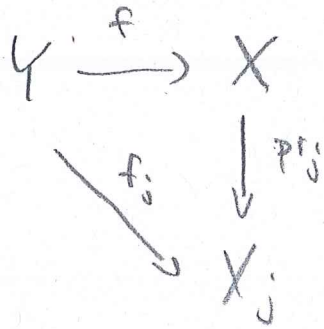 f
Y X
f_j pr_j
X_j